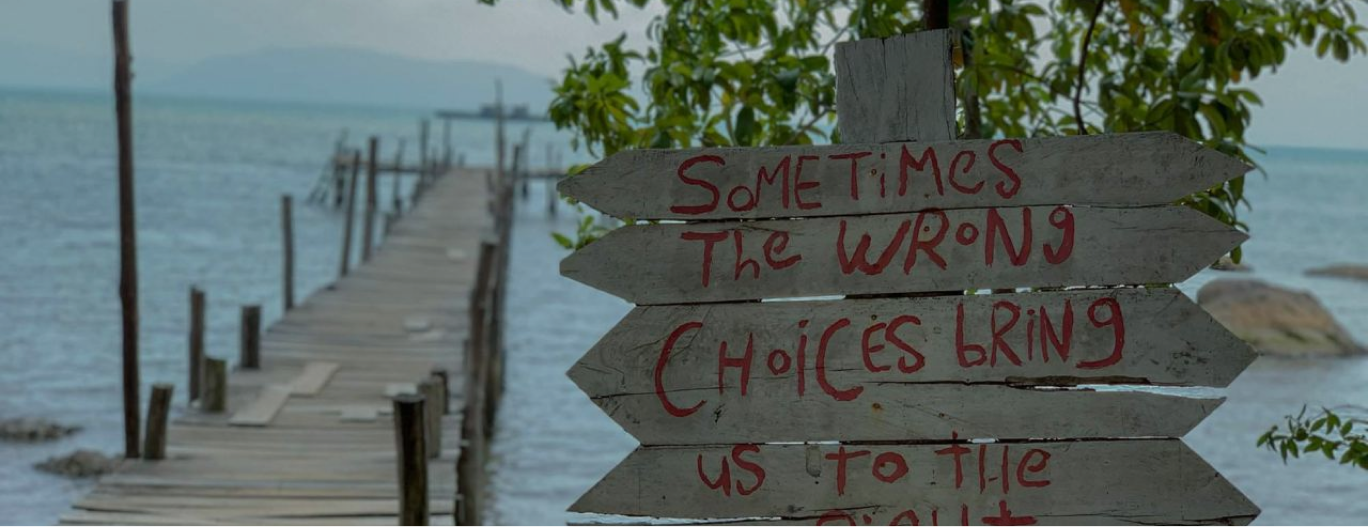 SoMETiMeS
The WRoNg
CHoiCES bRiNg
uS To tHe
RiGHt